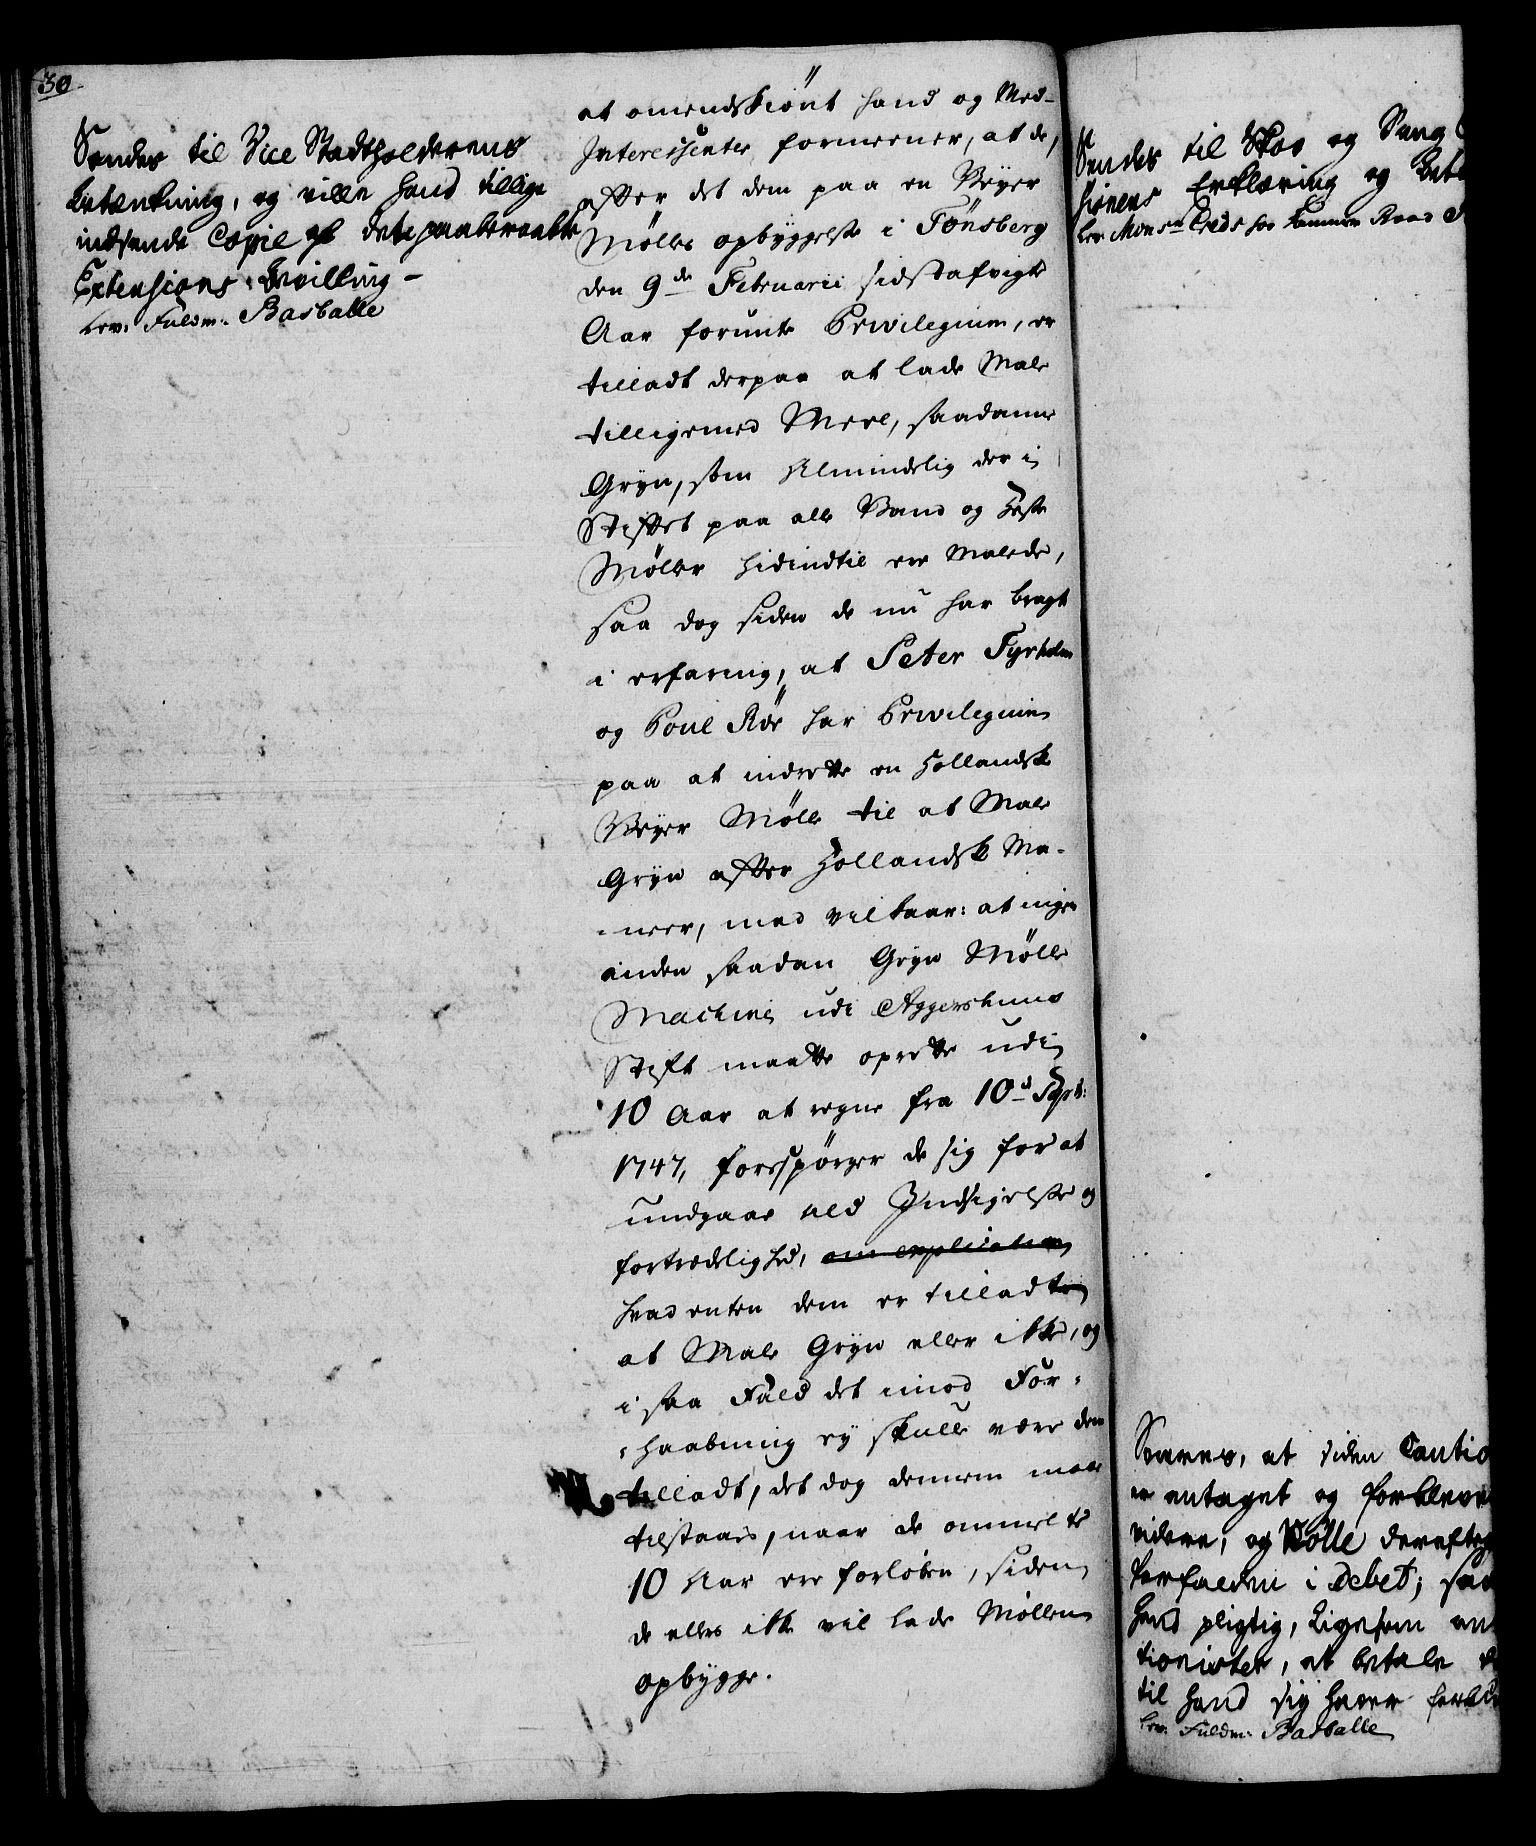 30
Sendes til Vice Stadtholderens
betænkning, og ville hand tillige
indsende Copie af det paaberaabte
Extensions Bevilling –
lev. Fuldm: Basballe
at omendskiönt hand og Med-
Interessenter formeener, at de,
efter det dem paa en Veyer
Mølles opbyggelse i Tønsberg
den 9de Februarii sidstafvigte
Aar forunte Privilegium, er
tilladt derpaa at lade Male
tilligemed Meel, saadanne
Gryn, som Almindelig der i
Stiftet paa alle Vand og Heste
Møller hidindtil ere Malede,
saa dog siden de nu har bragt
i erfaring, at Peter Tyrholm
og Poul Röe har Privilegium
paa at indrette en Hollandsk
Veyer Mølle til at Male
Gryn efter Hollandsk Ma-
-neer, med vilkaar: at ingen
anden saadan Gryn Mølle
Machine udi Aggershuus
Stift maatte oprette udi
10 Aar at regne fra 10d Sept:
1747, forespørger de sig for at
undgaae ald Indsigelse og
fortrædelighed, om explication
hvad enten dem er tilladt
at Male Gryn eller ikke, og
i saa Fald det imod For-
-haabning ey skulle være dem
tilladt, det dog dennem maae
tilstaaes, naar de ommelte
10 Aar ere forløben, siden
de ellers ikke vil lade Møllen
opbygge.
Sendes til Skov og Saug
sionens Erklæring og
lev. Mons. for Kammer Raad
Svares, at siden Cautio
er antaget og forbleven
videre, og Bölle derefter
forfalden i Debet; saa
hand pligtig, Ligesom
tionister, at betale
til hand sig haver
lev. Fuldm: Basballe